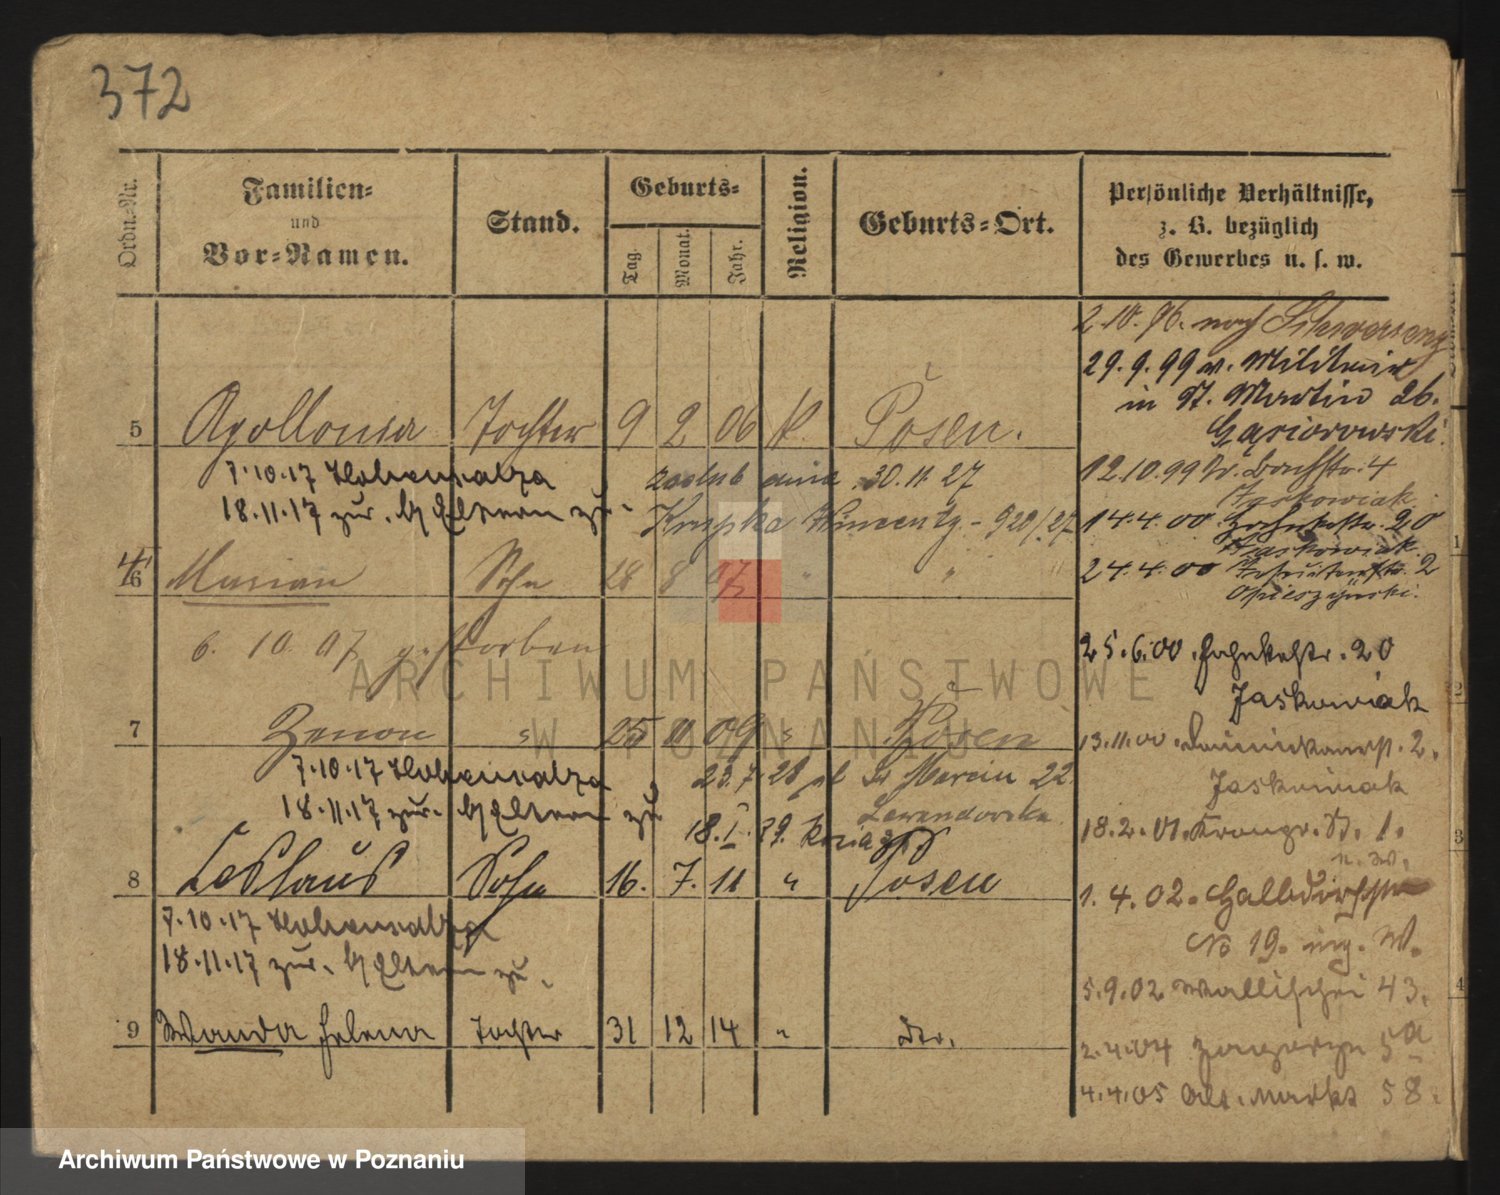 372
Ordn.-Nr.
Familien-
und
Vor-Namen.
Stand.
Geburts-
Tag.
Monat.
Jahr.
Religion.
Geburts-Ort.
Persönliche Verhältnisse,
z. B. bezüglich
des Gewerbes u. s. w.
2.10.96. nach Schwersenz
29.9.99 v. Militär
in St. Martin 26.
Gąsiorowski.
5 Apollonia Tochter 9 2 06 k. Posen.
7.10.17 Hohensalza
18.11.17 zur. b/ Eltern zu.
zaślub dnia 30.11.27
Krupka Wincenty - 929/27
12.10.99 Bachstr. 4
Jaskowiak
14.4.00 20
Jaskowiak.
24.4.00 2
Opieszyński.
6 Marian Sohn 28 8 07 " "
6. 10. 07 gestorben
25.6.00. 20
Jaskowiak
7 Zenon s 25 11 09 s Posen
7.10.17 Hohensalza
18.11.17 zur. b/ Eltern zu
23.7.28 pl Św Marcin 22
Lewandowska
18.I.39.
13.11.00. 2.
Jaskowiak
18.2.01. 1.
n. W.
8 Leslaus Sohn 16. 7. 11 " Posen
7.10.17 Hohensalza
18.11.17 zur. b/ Eltern zu.
1.4.02. Halbdorfstr
No 19. W.
5.9.02 Wallischei 43.
9 Wanda Helena Tochter 31 12 14 " dto.
2.4.04 5a
4.4.05 Alt. Markt 58.
ARCHIWUM PAŃSTWOWE
W POZNANIU
Archiwum Państwowe w Poznaniu